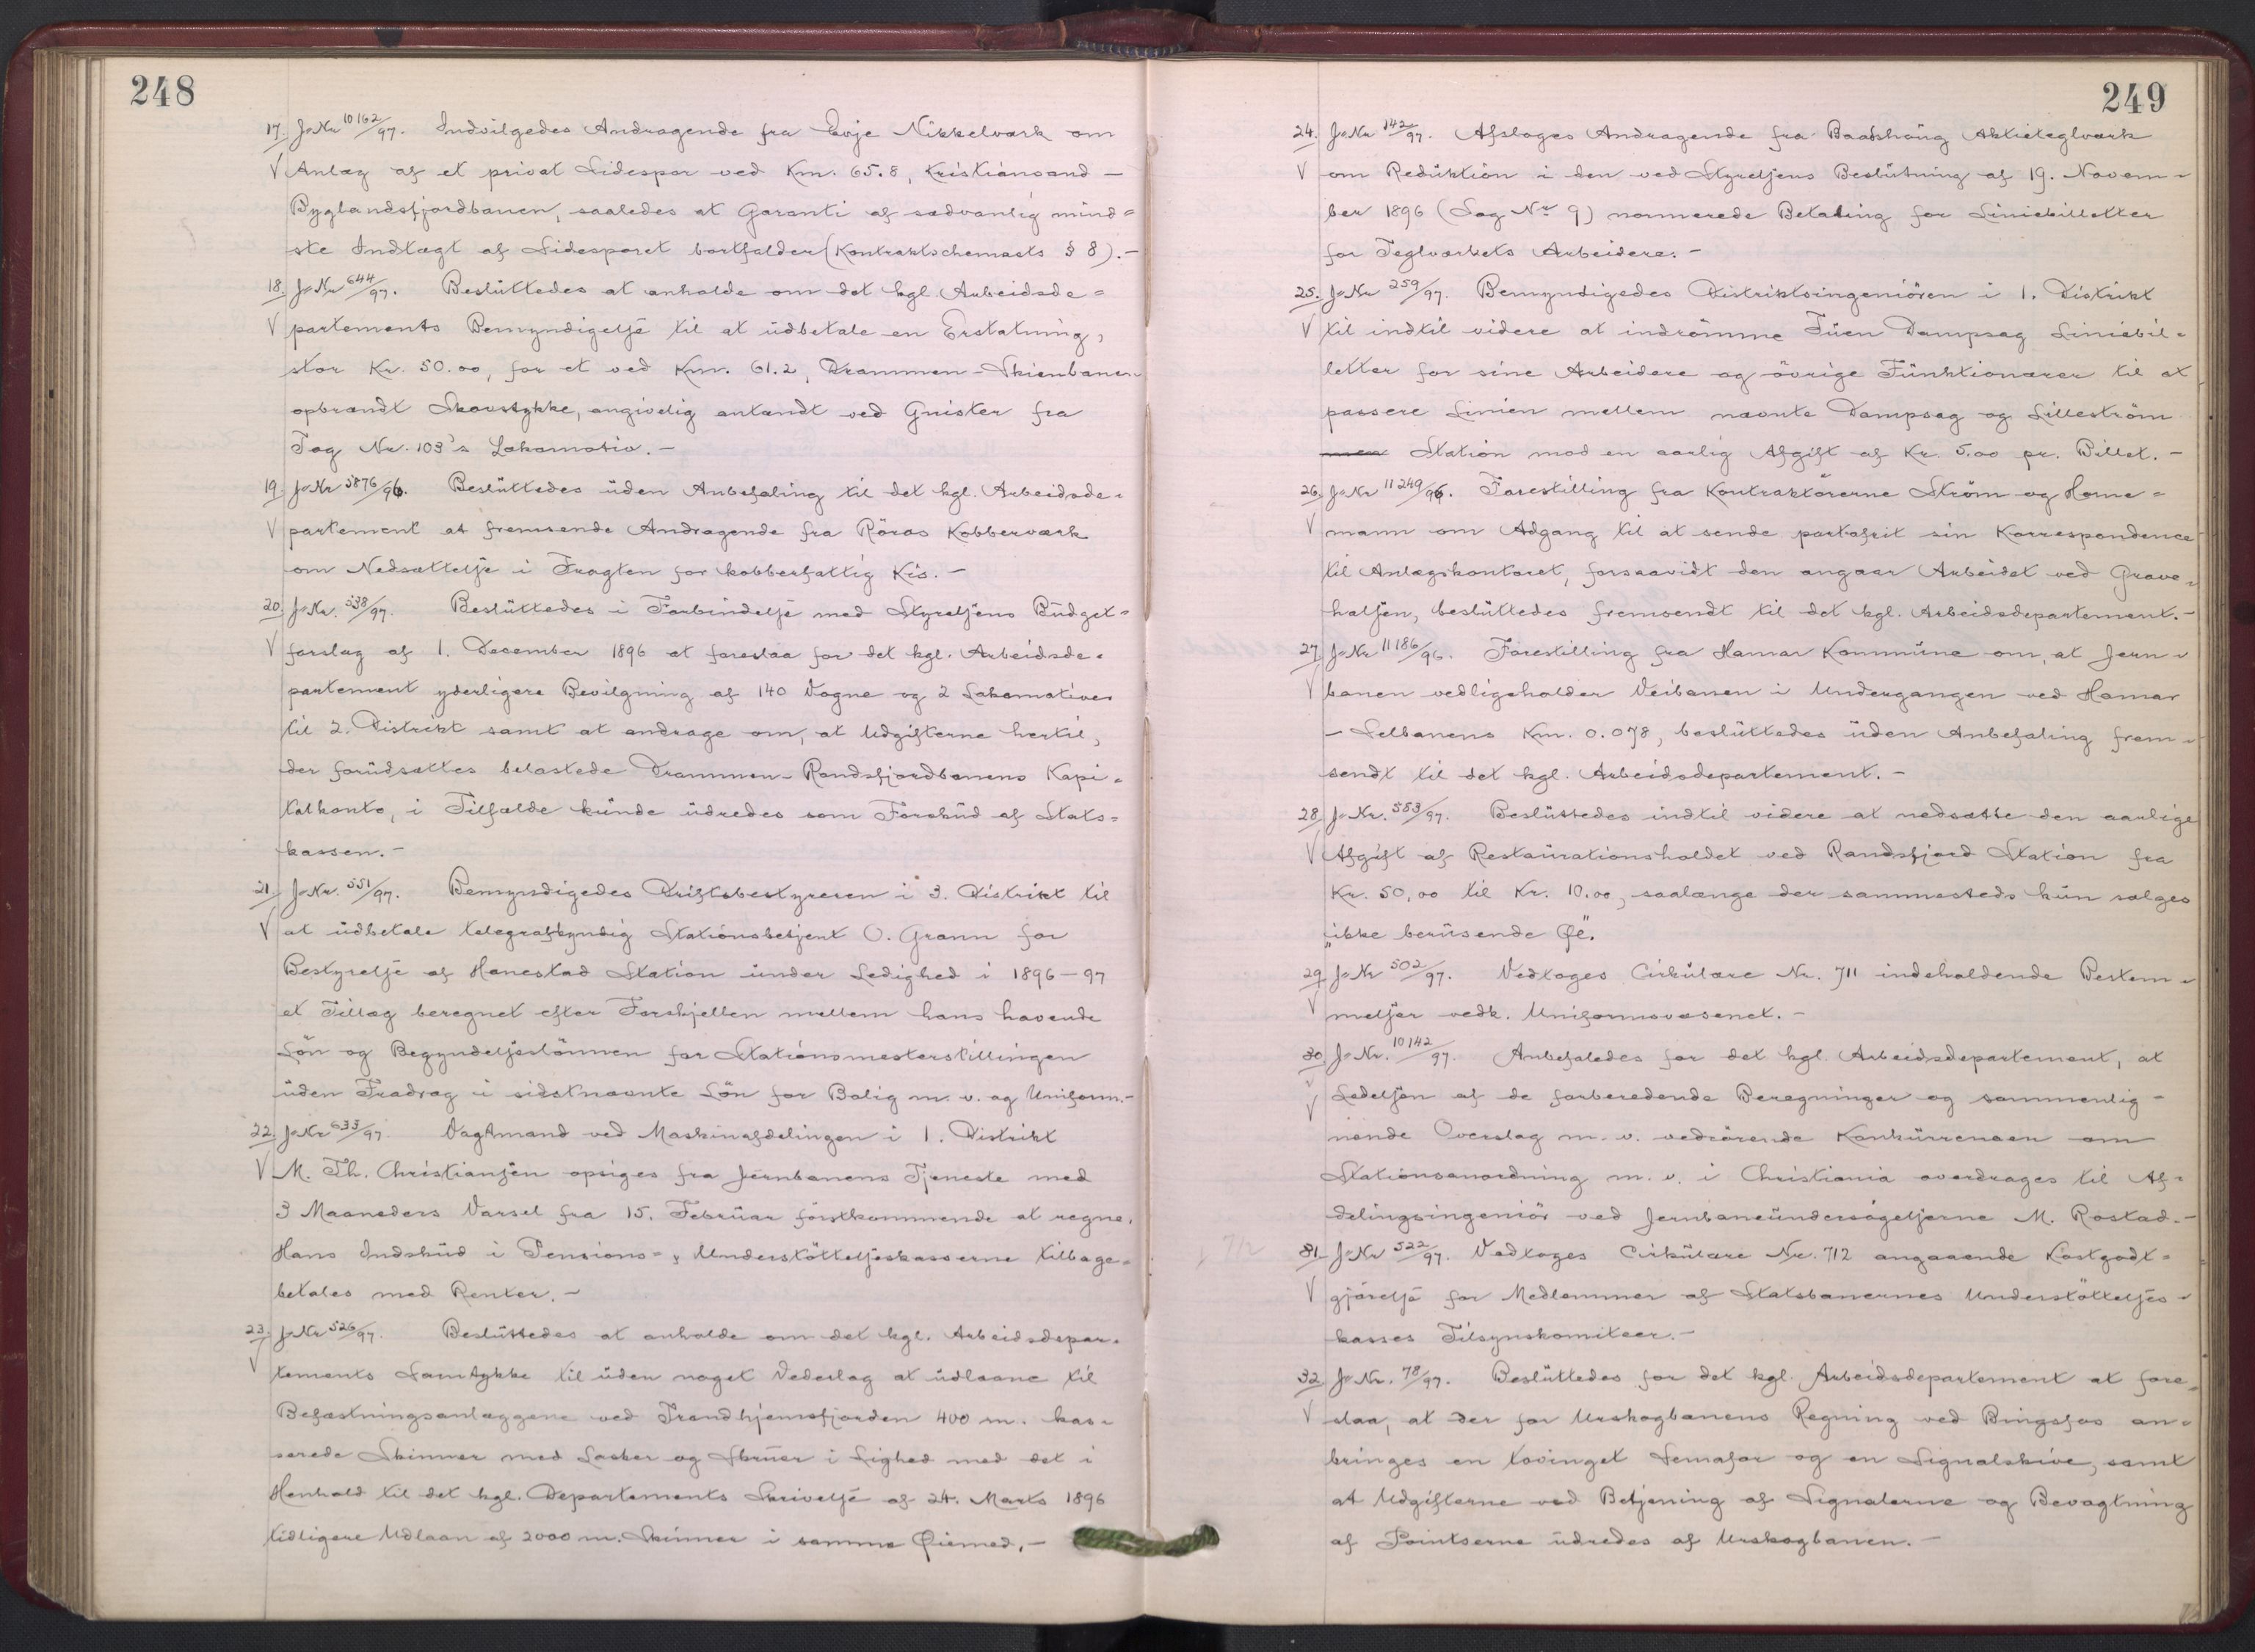 248
17. J-Nr 10162/97. Indvilgedes Andragende fra Evje Nikkelværk om
V Anlæg af et privat Sidespor ved Km. 65.8, Kristiansand –
Byglandsfjordbanen, saaledes at Garanti af sædvanlig mind=
ste Indtægt af Sidesporet bortfalder (Kontraktschemaets § 8). –
18. J-Nr 644/97. Besluttedes at anholde om det kgl. Arbeidsde=
V partements Bemyndigelse til at udbetale en Erstatning,
stor Kr. 50.00, for et ved Km. 61.2, Drammen-Skienbanen
opbrændt Skovstykke, angivelig antændt ved Gnister fra
Tog Nr. 103's Lokomotiv. –
19. J-Nr 5876/96. Besluttedes uden Anbefaling til det kgl. Arbeidsde=
V partement at fremsende Andragende fra Röros Kobberværk
om Nedsættelse i Fragten for kobberfattig Kis. –
20. J-Nr. 538/97. Besluttedes i Forbindelse med Styrelsens Budget=
V forslag af 1. December 1896 at foreslaa for det kgl. Arbeidsde=
partement yderligere Bevilgning af 140 Vogne og 2 Lokomotiver
til 2. Distrikt samt at andrage om, at Udgifterne hertil,
der forudsættes belastede Drammen-Randsfjordbanens Kapi=
talkonto, i Tilfælde kunde udredes som Forskud af Stats=
kassen. –
21. J-Nr. 551/97. Bemyndigedes Driftsbestyreren i 3. Distrikt til
V at udbetale telegrafkyndig Stationsbetjent O. Grann for
Bestyrelse af Hanestad Station under Ledighed i 1896–97
et Tillæg beregnet efter Forskjellen mellem hans havende
Lön og Begyndelseslönnen for Stationsmesterstillingen
uden Fradrag i sidstnævnte Lön for Bolig m. v. og Uniform. –
22. J-Nr 633/97. Vagtmand ved Maskinafdelingen i 1. Distrikt
V M. Th. Christiansen opsiges fra Jernbanens Tjeneste med
3 Maaneders Varsel fra 15. Februar förstkommende at regne.
Hans Indskud i Pensions- & Understöttelseskasserne tilbage=
betales med Renter. –
23. J-Nr 526/97. Besluttedes at anholde om det kgl. Arbeidsdepar=
V tements Samtykke til uden noget Vederlag at udlaane til
Befæstningsanlæggene ved Trondhjemsfjorden 400 m. kas=
serede Skinner med Lasker og Skruer i Lighed med det i
Henhold til det kgl. Departements Skrivelse af 24. Marts 1896
tidligere Udlaan af 2000 m. Skinner i samme Øiemed. –
249
24. J-Nr 142/97. Afsloges Andragende fra Baadshaug Aktieteglværk
V om Reduktion i den ved Styrelsens Beslutning af 19. Novem=
ber 1896 (Sag Nr 9) normerede Betaling for Liniebilletter
for Teglværkets Arbeidere. –
25. J-Nr 259/97. Bemyndigedes Distriktsingeniören i 1. Distrikt
V til indtil videre at indrömme Tuen Dampsag Liniebil=
letter for sine Arbeidere og övrige Funktionærer til at
passere Linien mellem nævnte Dampsag og Lilleström
Station mod en aarlig Afgift af Kr. 5.00 pr. Billet. –
26. J-Nr 11249/96. Forestilling fra Kontraktörerne Ström og Horne=
V mann om Adgang til at sende portofrit sin Korrespondence
til Anlægskontoret, forsaavidt den angaar Arbeidet ved Grave=
halsen, besluttedes fremsendt til det kgl. Arbeidsdepartement. –
27. J-Nr 11186/96. Forestilling fra Hamar Kommune om, at Jern=
V banen vedligeholder Veibanen i Undergangen ved Hamar
– Selbanens Km. 0.078, besluttedes uden Anbefaling frem=
sendt til det kgl. Arbeidsdepartement. –
28. J-Nr. 553/97. Besluttedes indtil videre at nedsætte den aarlige
V Afgift af Restaurationsholdet ved Randsfjord Station fra
Kr. 50.00 til Kr. 10.00, saalænge der sammesteds kun sælges
„ikke berusende Øl“.
29. J-Nr 502/97. Vedtoges Cirkulære Nr. 711 indeholdende Bestem=
V melser vedk. Uniformsvæsenet. –
30. J-Nr. 10142/97. Anbefaledes for det kgl. Arbeidsdepartement, at
V Ledelsen af de forberedende Beregninger og sammenlig=
nende Overslag m. v. vedrörende Konkurrencen om
Stationsanordning m. v. i Christiania overdrages til Af=
delingsingeniör ved Jernbaneundersögelserne M. Rostad. –
712
31. J-Nr 522/97. Vedtoges Cirkulære Nr. 712 angaaende Kostgodt=
V gjörelse for Medlemmer af Statsbanernes Understöttelses=
kasses Tilsynskomiteer. –
32. J-Nr. 78/97. Besluttedes for det kgl. Arbeidsdepartement at fore=
V slaa, at der for Urskogbanens Regning ved Bingsfos an=
bringes en tovinget Semafor og en Signalskive, samt
at Udgifterne ved Betjening af Signalerne og Bevogtning
af Pointserne udredes af Urskogbanen. –